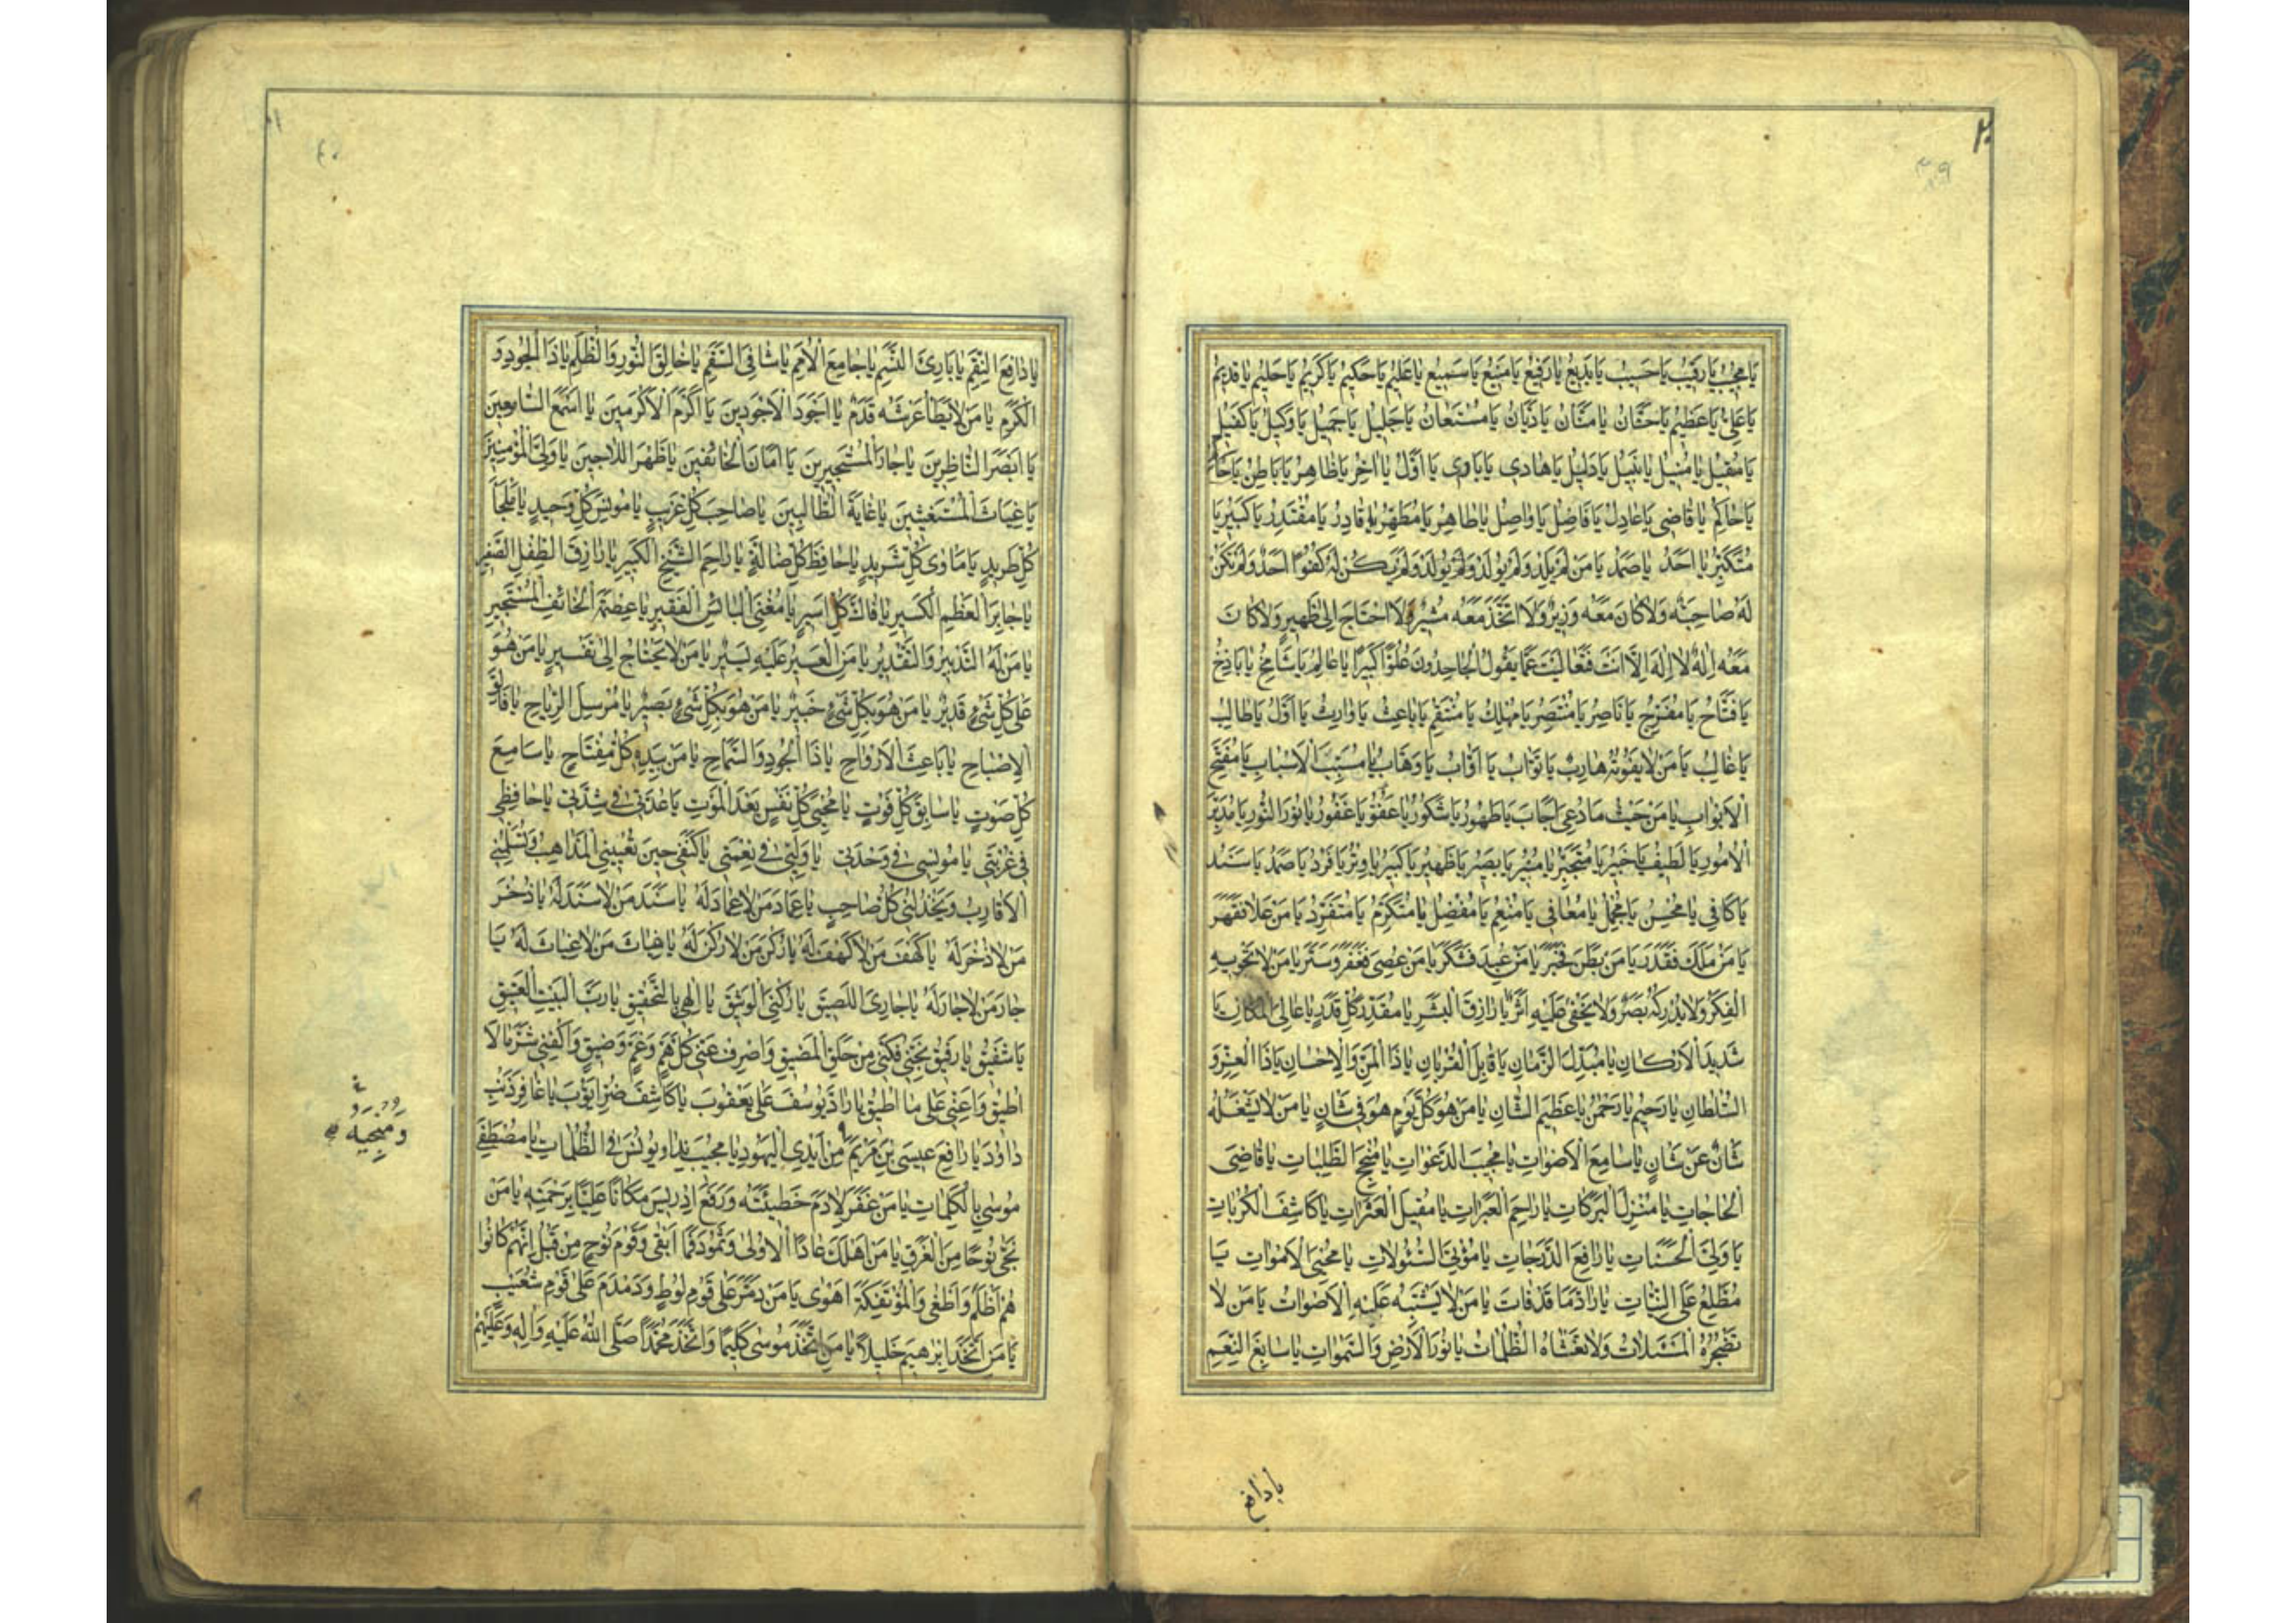 ٢٠
٣٩
يَا مُجِيبُ يَا رَقِيبُ يَا حَسِيبُ يَا بَدِيعُ يَا رَفِيعُ يَا مَنِيعُ يَا سَمِيعُ يَا عَلِيمُ يَا حَكِيمُ يَا كَرِيمُ يَا حَلِيمُ يَا قَدِيمُ
يَا عَلِيُّ يَا عَظِيمُ يَا حَنَّانُ يَا مَنَّانُ يَا دَيَّانُ يَا مُسْتَعَانُ يَا جَلِيلُ يَا جَمِيلُ يَا وَكِيلُ يَا كَفِيلُ
يَا مُقِيلُ يَا مُنِيلُ يَا نَبِيلُ يَا دَلِيلُ يَا هَادِي يَا بَادِي يَا اَوَّلُ يَا اٰخِرُ يَا ظَاهِرُ يَا بَاطِنُ
يَا حَاكِمُ يَا قَاضِي يَا عَادِلُ يَا فَاضِلُ يَا وَاصِلُ يَا طَاهِرُ يَا مُطَهِّرُ يَا قَادِرُ يَا مُقْتَدِرُ يَا كَبِيرُ يَا
مُتَكَبِّرُ يَا اَحَدُ يَا صَمَدُ يَا مَنْ لَمْ يَلِدْ وَلَمْ يُولَدْ وَلَمْ يَكُنْ لَهُ كُفُوًا اَحَدٌ وَلَمْ تَكُنْ
لَهُ صَاحِبَةٌ وَلَا كَانَ مَعَهُ وَزِيرٌ وَلَا اتَّخَذَ مَعَهُ مُشِيرًا وَلَا احْتَاجَ اِلىٰ ظَهِيرٍ وَلَا كَانَ
مَعَهُ اِلٰهٌ لَا اِلٰهَ اِلَّا اَنْتَ فَتَعَالَيْتَ عَمَّا يَقُولُ الْجَاحِدُونَ عُلُوًّا كَبِيرًا يَا عَالِمُ يَا شَامِخُ يَا بَاذِخُ
يَا فَتَّاحُ يَا مُفَرِّجُ يَا نَاصِرُ يَا مُنْتَصِرُ يَا مُهْلِكُ يَا مُنْتَقِمُ يَا بَاعِثُ يَا وَارِثُ يَا اَوَّلُ يَا طَالِبُ
يَا غَالِبُ يَا مَنْ لَا يَفُوتُهُ هَارِبٌ يَا تَوَّابُ يَا اَوَّابُ يَا وَهَّابُ يَا مُسَبِّبَ الْاَسْبَابِ يَا مُفَتِّحَ
الْاَبْوَابِ يَا مَنْ حَيْثُ مَا دُعِيَ اَجَابَ يَا طَهُورُ يَا شَكُورُ يَا عَفُوُّ يَا غَفُورُ يَا نُورَ النُّورِ يَا مُدَبِّرَ
الْاُمُورِ يَا لَطِيفُ يَا خَبِيرُ يَا مُتَجَبِّرُ يَا مُنِيرُ يَا بَصِيرُ يَا ظَهِيرُ يَا كَبِيرُ يَا وِتْرُ يَا فَرْدُ يَا صَمَدُ يَا سَنَدُ
يَا كَافِي يَا مُحْسِنُ يَا مُجْمِلُ يَا مُعَافِي يَا مُنْعِمُ يَا مُفْضِلُ يَا مُتَكَرِّمُ يَا مُتَفَرِّدُ يَا مَنْ عَلَا فَقَهَرَ
يَا مَنْ مَلَكَ فَقَدَرَ يَا مَنْ بَطَنَ فَخَبَرَ يَا مَنْ عُبِدَ فَشَكَرَ يَا مَنْ عُصِيَ فَغَفَرَ وَسَتَرَ يَا مَنْ لَا تَحْوِيهِ
الْفِكَرُ وَلَا يُدْرِكُهُ بَصَرٌ وَلَا يَخْفىٰ عَلَيْهِ اَثَرٌ يَا رَازِقَ الْبَشَرِ يَا مُقَدِّرَ كُلِّ قَدَرٍ يَا عَالِيَ الْمَكَانِ يَا
شَدِيدَ الْاَرْكَانِ يَا مُبَدِّلَ الزَّمَانِ يَا قَابِلَ الْقُرْبَانِ يَا ذَا الْمَنِّ وَالْاِحْسَانِ يَا ذَا الْعِزِّ وَ
السُّلْطَانِ يَا رَحِيمُ يَا رَحْمٰنُ يَا عَظِيمَ الشَّانِ يَا مَنْ هُوَ كُلَّ يَوْمٍ هُوَ فِي شَانٍ يَا مَنْ لَا يَشْغَلُهُ
شَانٌ عَنْ شَانٍ يَا سَامِعَ الْاَصْوَاتِ يَا مُجِيبَ الدَّعَوَاتِ يَا مُنْجِحَ الطَّلِبَاتِ يَا قَاضِيَ
الْحَاجَاتِ يَا مُنْزِلَ الْبَرَكَاتِ يَا رَاحِمَ الْعَبَرَاتِ يَا مُقِيلَ الْعَثَرَاتِ يَا كَاشِفَ الْكُرُبَاتِ
يَا وَلِيَّ الْحَسَنَاتِ يَا رَافِعَ الدَّرَجَاتِ يَا مُؤْتِيَ السُّئُولَاتِ يَا مُحْيِيَ الْاَمْوَاتِ يَا
مُطَّلِعُ عَلَى النِّيَّاتِ يَا رَادَّ مَا قَدْ فَاتَ يَا مَنْ لَا يَشْتَبِهُ عَلَيْهِ الْاَصْوَاتُ يَا مَنْ لَا
تُضْجِرُهُ الْمَسْئَلَاتُ وَلَا تَغْشَاهُ الظُّلُمَاتُ يَا نُورَ الْاَرْضِ وَالسَّمٰوَاتِ يَا سَابِغَ النِّعَمِ
يا دافع
٤٠
يَا دَافِعَ النِّقَمِ يَا بَارِئَ النَّسَمِ يَا جَامِعَ الْاُمَمِ يَا شَافِيَ السَّقَمِ يَا خَالِقَ النُّورِ وَالظُّلَمِ يَا ذَا الْجُودِ وَ
الْكَرَمِ يَا مَنْ لَا يَطَأُ عَرْشَهُ قَدَمٌ يَا اَجْوَدَ الْاَجْوَدِينَ يَا اَكْرَمَ الْاَكْرَمِينَ يَا اَسْمَعَ السَّامِعِينَ
يَا اَبْصَرَ النَّاظِرِينَ يَا جَارَ الْمُسْتَجِيرِينَ يَا اَمَانَ الْخَائِفِينَ يَا ظَهْرَ اللَّاجِينَ يَا وَلِيَّ الْمُؤْمِنِينَ
يَا غِيَاثَ الْمُسْتَغِيثِينَ يَا غَايَةَ الطَّالِبِينَ يَا صَاحِبَ كُلِّ غَرِيبٍ يَا مُونِسَ كُلِّ وَحِيدٍ يَا مَلْجَأَ
كُلِّ طَرِيدٍ يَا مَاْوىٰ كُلِّ شَرِيدٍ يَا حَافِظَ كُلِّ ضَالَّةٍ يَا رَاحِمَ الشَّيْخِ الْكَبِيرِ يَا رَازِقَ الطِّفْلِ الصَّغِيرِ
يَا جَابِرَ الْعَظْمِ الْكَسِيرِ يَا فَاكَّ كُلِّ اَسِيرٍ يَا مُغْنِيَ الْبَائِسِ الْفَقِيرِ يَا عِصْمَةَ الْخَائِفِ الْمُسْتَجِيرِ
يَا مَنْ لَهُ التَّدْبِيرُ وَالتَّقْدِيرُ يَا مَنِ الْعَسِيرُ عَلَيْهِ يَسِيرٌ يَا مَنْ لَا يَحْتَاجُ اِلىٰ تَفْسِيرٍ يَا مَنْ هُوَ
عَلىٰ كُلِّ شَيْءٍ قَدِيرٌ يَا مَنْ هُوَ بِكُلِّ شَيْءٍ خَبِيرٌ يَا مَنْ هُوَ بِكُلِّ شَيْءٍ بَصِيرٌ يَا مُرْسِلَ الرِّيَاحِ يَا فَالِقَ
الْاِصْبَاحِ يَا بَاعِثَ الْاَرْوَاحِ يَا ذَا الْجُودِ وَالسَّمَاحِ يَا مَنْ بِيَدِهِ كُلُّ مِفْتَاحٍ يَا سَامِعَ
كُلِّ صَوْتٍ يَا سَابِقَ كُلِّ فَوْتٍ يَا مُحْيِيَ كُلِّ نَفْسٍ بَعْدَ الْمَوْتِ يَا عُدَّتِي فِي شِدَّتِي يَا حَافِظِي
فِي غُرْبَتِي يَا مُونِسِي فِي وَحْدَتِي يَا وَلِيِّي فِي نِعْمَتِي يَا كَنَفِي حِينَ تُعْيِينِي الْمَذَاهِبُ وَتُسَلِّمُنِي
الْاَقَارِبُ وَيَخْذُلُنِي كُلُّ صَاحِبٍ يَا عِمَادَ مَنْ لَا عِمَادَ لَهُ يَا سَنَدَ مَنْ لَا سَنَدَ لَهُ يَا ذُخْرَ
مَنْ لَا ذُخْرَ لَهُ يَا كَهْفَ مَنْ لَا كَهْفَ لَهُ يَا رُكْنَ مَنْ لَا رُكْنَ لَهُ يَا غِيَاثَ مَنْ لَا غِيَاثَ لَهُ يَا
جَارَ مَنْ لَا جَارَ لَهُ يَا جَارِيَ اللَّصِيقَ يَا رُكْنِيَ الْوَثِيقَ يَا اِلٰهِي بِالتَّحْقِيقِ يَا رَبَّ الْبَيْتِ الْعَتِيقِ
يَا شَفِيقُ يَا رَفِيقُ نَجِّنِي فُكَّنِي مِنْ حَلَقِ الْمَضِيقِ وَاصْرِفْ عَنِّي كُلَّ هَمٍّ وَغَمٍّ وَضِيقٍ وَاكْفِنِي شَرَّ مَا لَا
اُطِيقُ وَاَعِنِّي عَلىٰ مَا اُطِيقُ يَا رَادَّ يُوسُفَ عَلىٰ يَعْقُوبَ يَا كَاشِفَ ضُرِّ اَيُّوبَ يَا غَافِرَ ذَنْبِ
دَاوُدَ يَا رَافِعَ عِيسَى بْنِ مَرْيَمَ مِنْ اَيْدِي الْيَهُودِ يَا مُجِيبَ نِدَاءِ يُونُسَ فِي الظُّلُمَاتِ يَا مُصْطَفِيَ
مُوسىٰ بِالْكَلِمَاتِ يَا مَنْ غَفَرَ لِاٰدَمَ خَطِيئَتَهُ وَرَفَعَ اِدْرِيسَ مَكَانًا عَلِيًّا بِرَحْمَتِهِ يَا مَنْ
نَجّىٰ نُوحًا مِنَ الْغَرَقِ يَا مَنْ اَهْلَكَ عَادًا الْاُولىٰ وَثَمُودَ فَمَا اَبْقىٰ وَقَوْمَ نُوحٍ مِنْ قَبْلُ اِنَّهُمْ كَانُوا
هُمْ اَظْلَمَ وَاَطْغىٰ وَالْمُؤْتَفِكَةَ اَهْوىٰ يَا مَنْ دَمَّرَ عَلىٰ قَوْمِ لُوطٍ وَدَمْدَمَ عَلىٰ قَوْمِ شُعَيْبٍ
يَا مَنِ اتَّخَذَ اِبْرٰهِيمَ خَلِيلًا يَا مَنِ اتَّخَذَ مُوسىٰ كَلِيمًا وَاتَّخَذَ مُحَمَّدًا صَلَّى اللّٰهُ عَلَيْهِ وَاٰلِهِ وَعَلَيْهِمْ
وَمُنْجِيَهُ